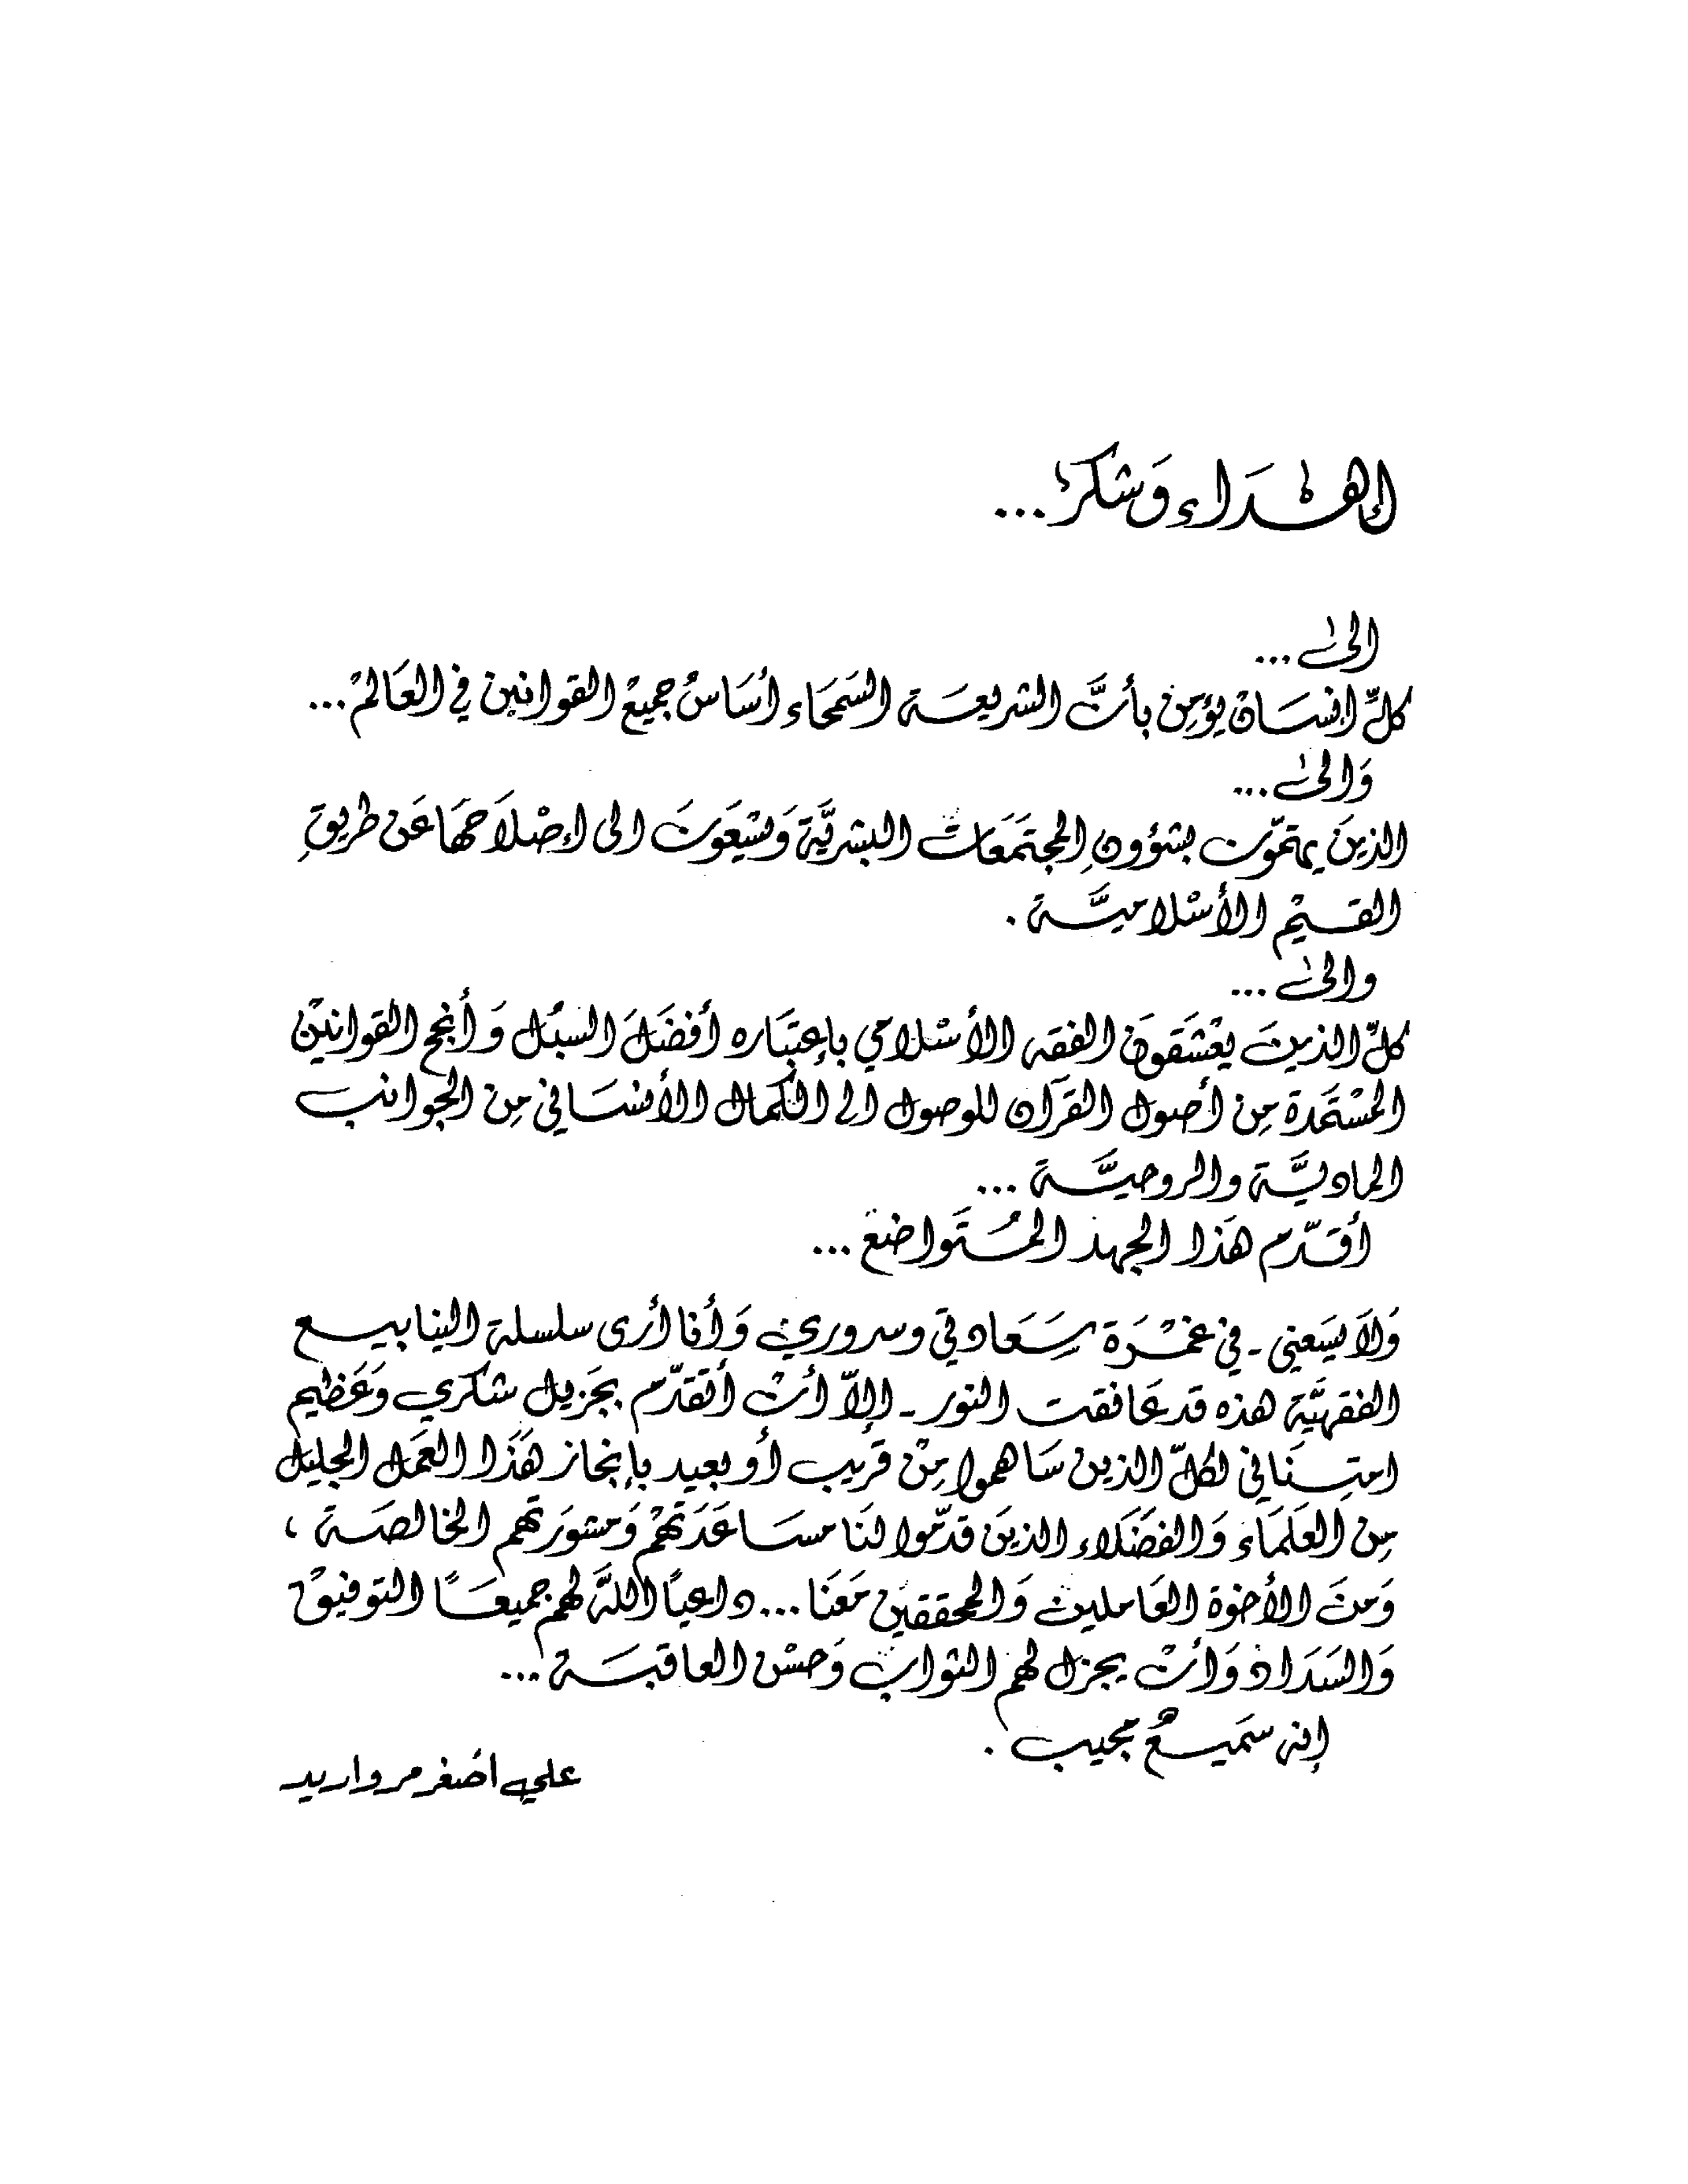 إهْدَاء وَشكرٌ...
الىٰ...
كلِّ انسَان يؤمِن بأنَّ الشريعَة السَمحَاء أسَاسُ جميعْ القوانين في العَالمْ...
وَالىٰ...
الذينَ يهتمّون بشؤونِ المجتَمَعَات البشريَّة وَيسْعَونَ الى إصْلاَحهَا عَن طريقِ
القيَمْ الأسْلاميَّة.
والىٰ...
كلِّ الذينَ يعْشَقونَ الفقه الأسْلامي بإعتبَاره أفضَلَ السبُل وَأنجح القوانيْن
المسْتَمدة مِن أصول القرآن للوصول الى الكمال الأنسَاني مِن الجوانب
الماديَّة والروحيَّة...
أقَدّم هَذا الجهد المُتَواضع...
وَلاَ يسَعني - في غمْرَة سَعَادتي وسروري وَأنا أرى سلسلة الينابيع
الفقهيَّة هذه قد عَانقت النور - إلاّ أنْ أتقدّم بجَزيل شكري وَعَظيم
امتِنَاني لكلّ الذين سَاهموا مِنْ قريب أو بعيد بإنجاز هَذا العَمل الجليل
مِن العلمَاء وَالفضَلاء الذينَ قدّموا لنَا مسَاعَدَتهْم وَمشورَتهم الخالصَة ،
وَمنَ الأخوة العَاملين وَالمحققيَن مَعَنا... داعياً اللهَ لهم جميعَاً التوفيقْ
وَالسَدَاد وَأنْ يجزل لهم الثواب وَحسْن العاقبَة...
إنه سَميعٌ مجيب.
علي أصغر مرواريد